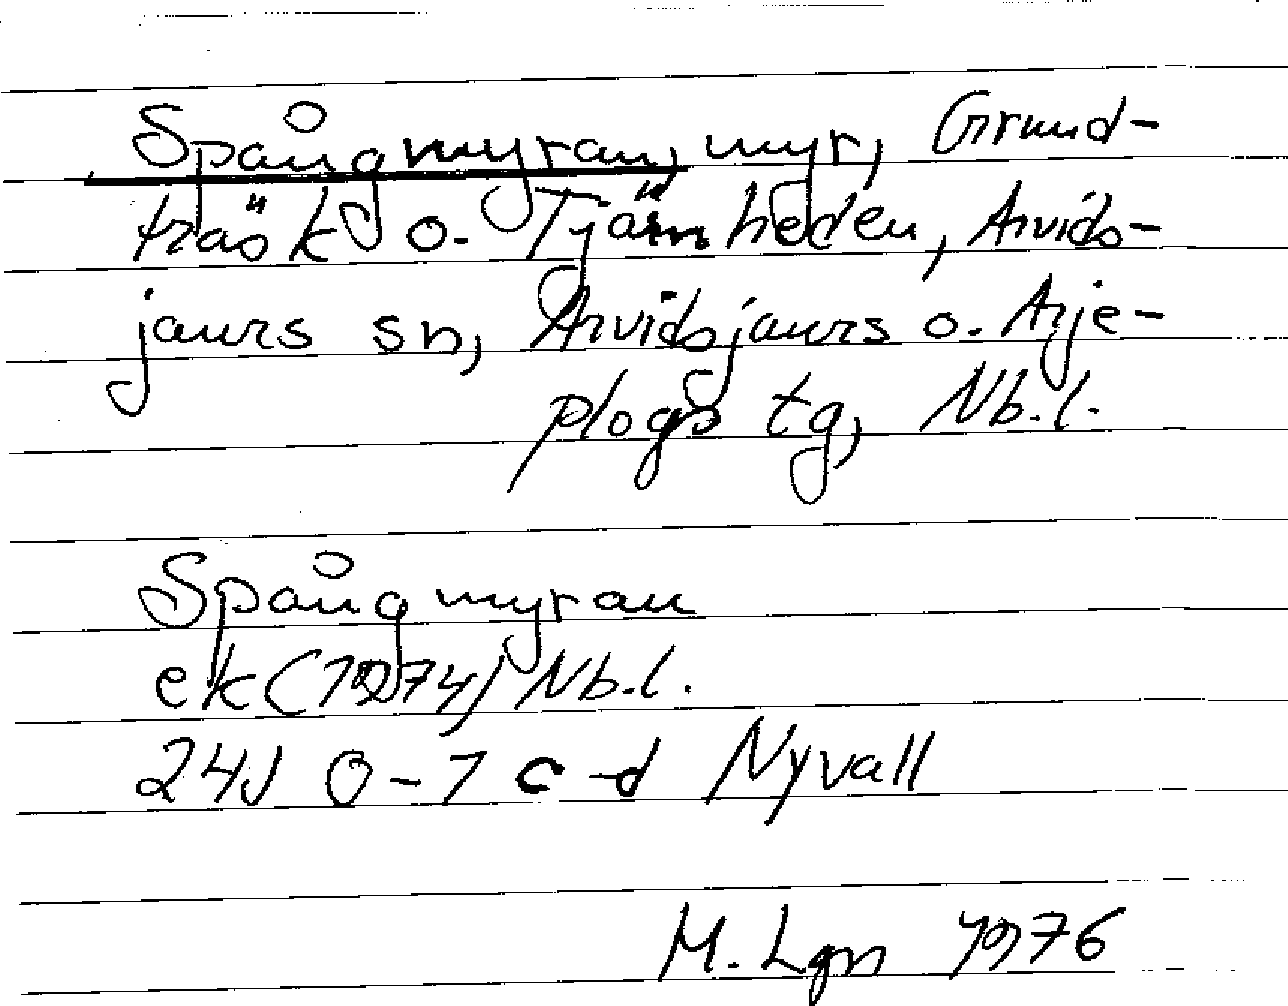 Spångmyran, myr, Grund-
träsk o. Tjärnheden, Arvids-
jaurs sn, Arvidsjaurs o. Arje-
plogs tg, Nb.l.
Spångmyran
ek (1974) Nb.l.
24J 0-1 c-d Nyvall
M. Lgn 1976